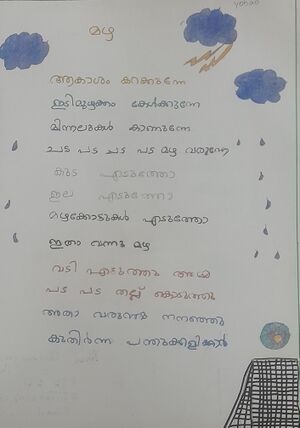 മഴ
ആകാശം കറക്കുന്നേ
ഇടിമുഴക്കം കേൾക്കുന്നേ
മിന്നലുകൾ കാണുന്നേ
ചട പട ചട പട മഴ വരുന്നേ
കുട എടുത്തോ
ഇല എടുത്തോ
മഴക്കോട്ടുകൾ എടുത്തോ
ഇതാ വന്നു മഴ
വടി എടുത്തു അമ്മ
പട പട തല്ല് കൊടുത്തു
അതാ വരുന്നു നനഞ്ഞു
കുതിർന്ന പന്തുക്കളിക്കാർ